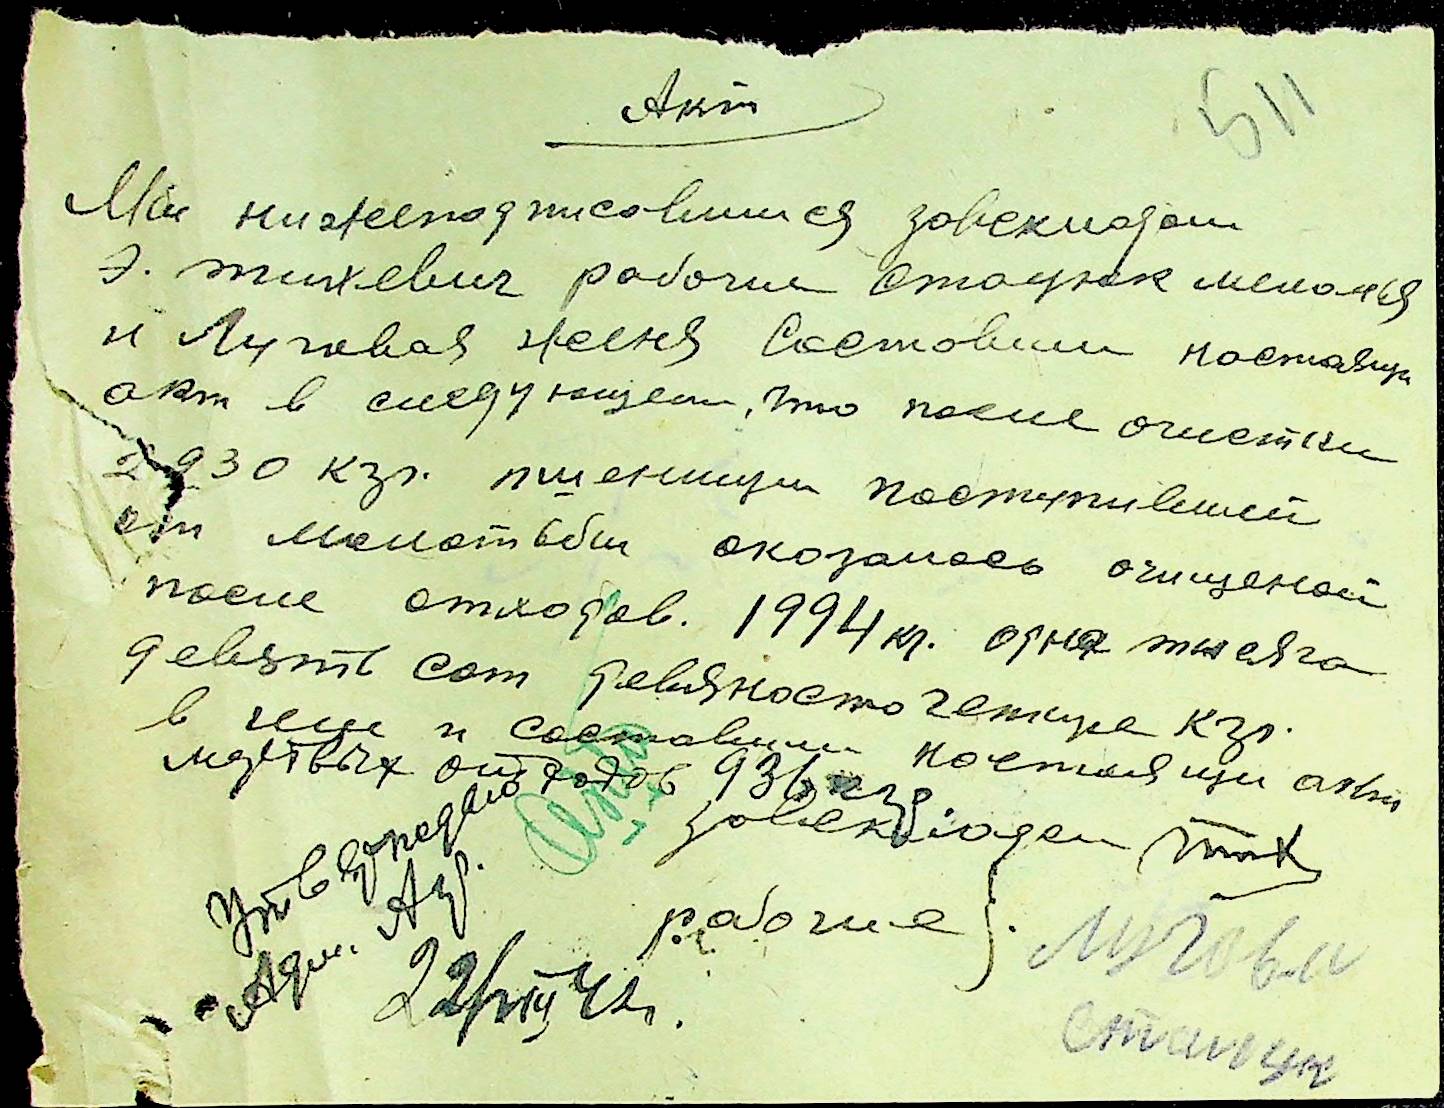 511
Акт
Мы нижеподписавшися завскладом
Э. тихевич рабочие стацюк меланья
и Луговая женя составили настоящи
акт в следующем, что после очистки
2930 кгр. пшеницы поступивший
от молотьбы оказалось очищеной
после отходов. 1994 кг. одна тысяча
девять сот девяносто четире кгр.
в чем и составили настоящи акт
мертвых отходов 936 кгр
завскладом
рабочие
Утверждаю
Адм.
22/VIII 41г.
Лугова
стацук